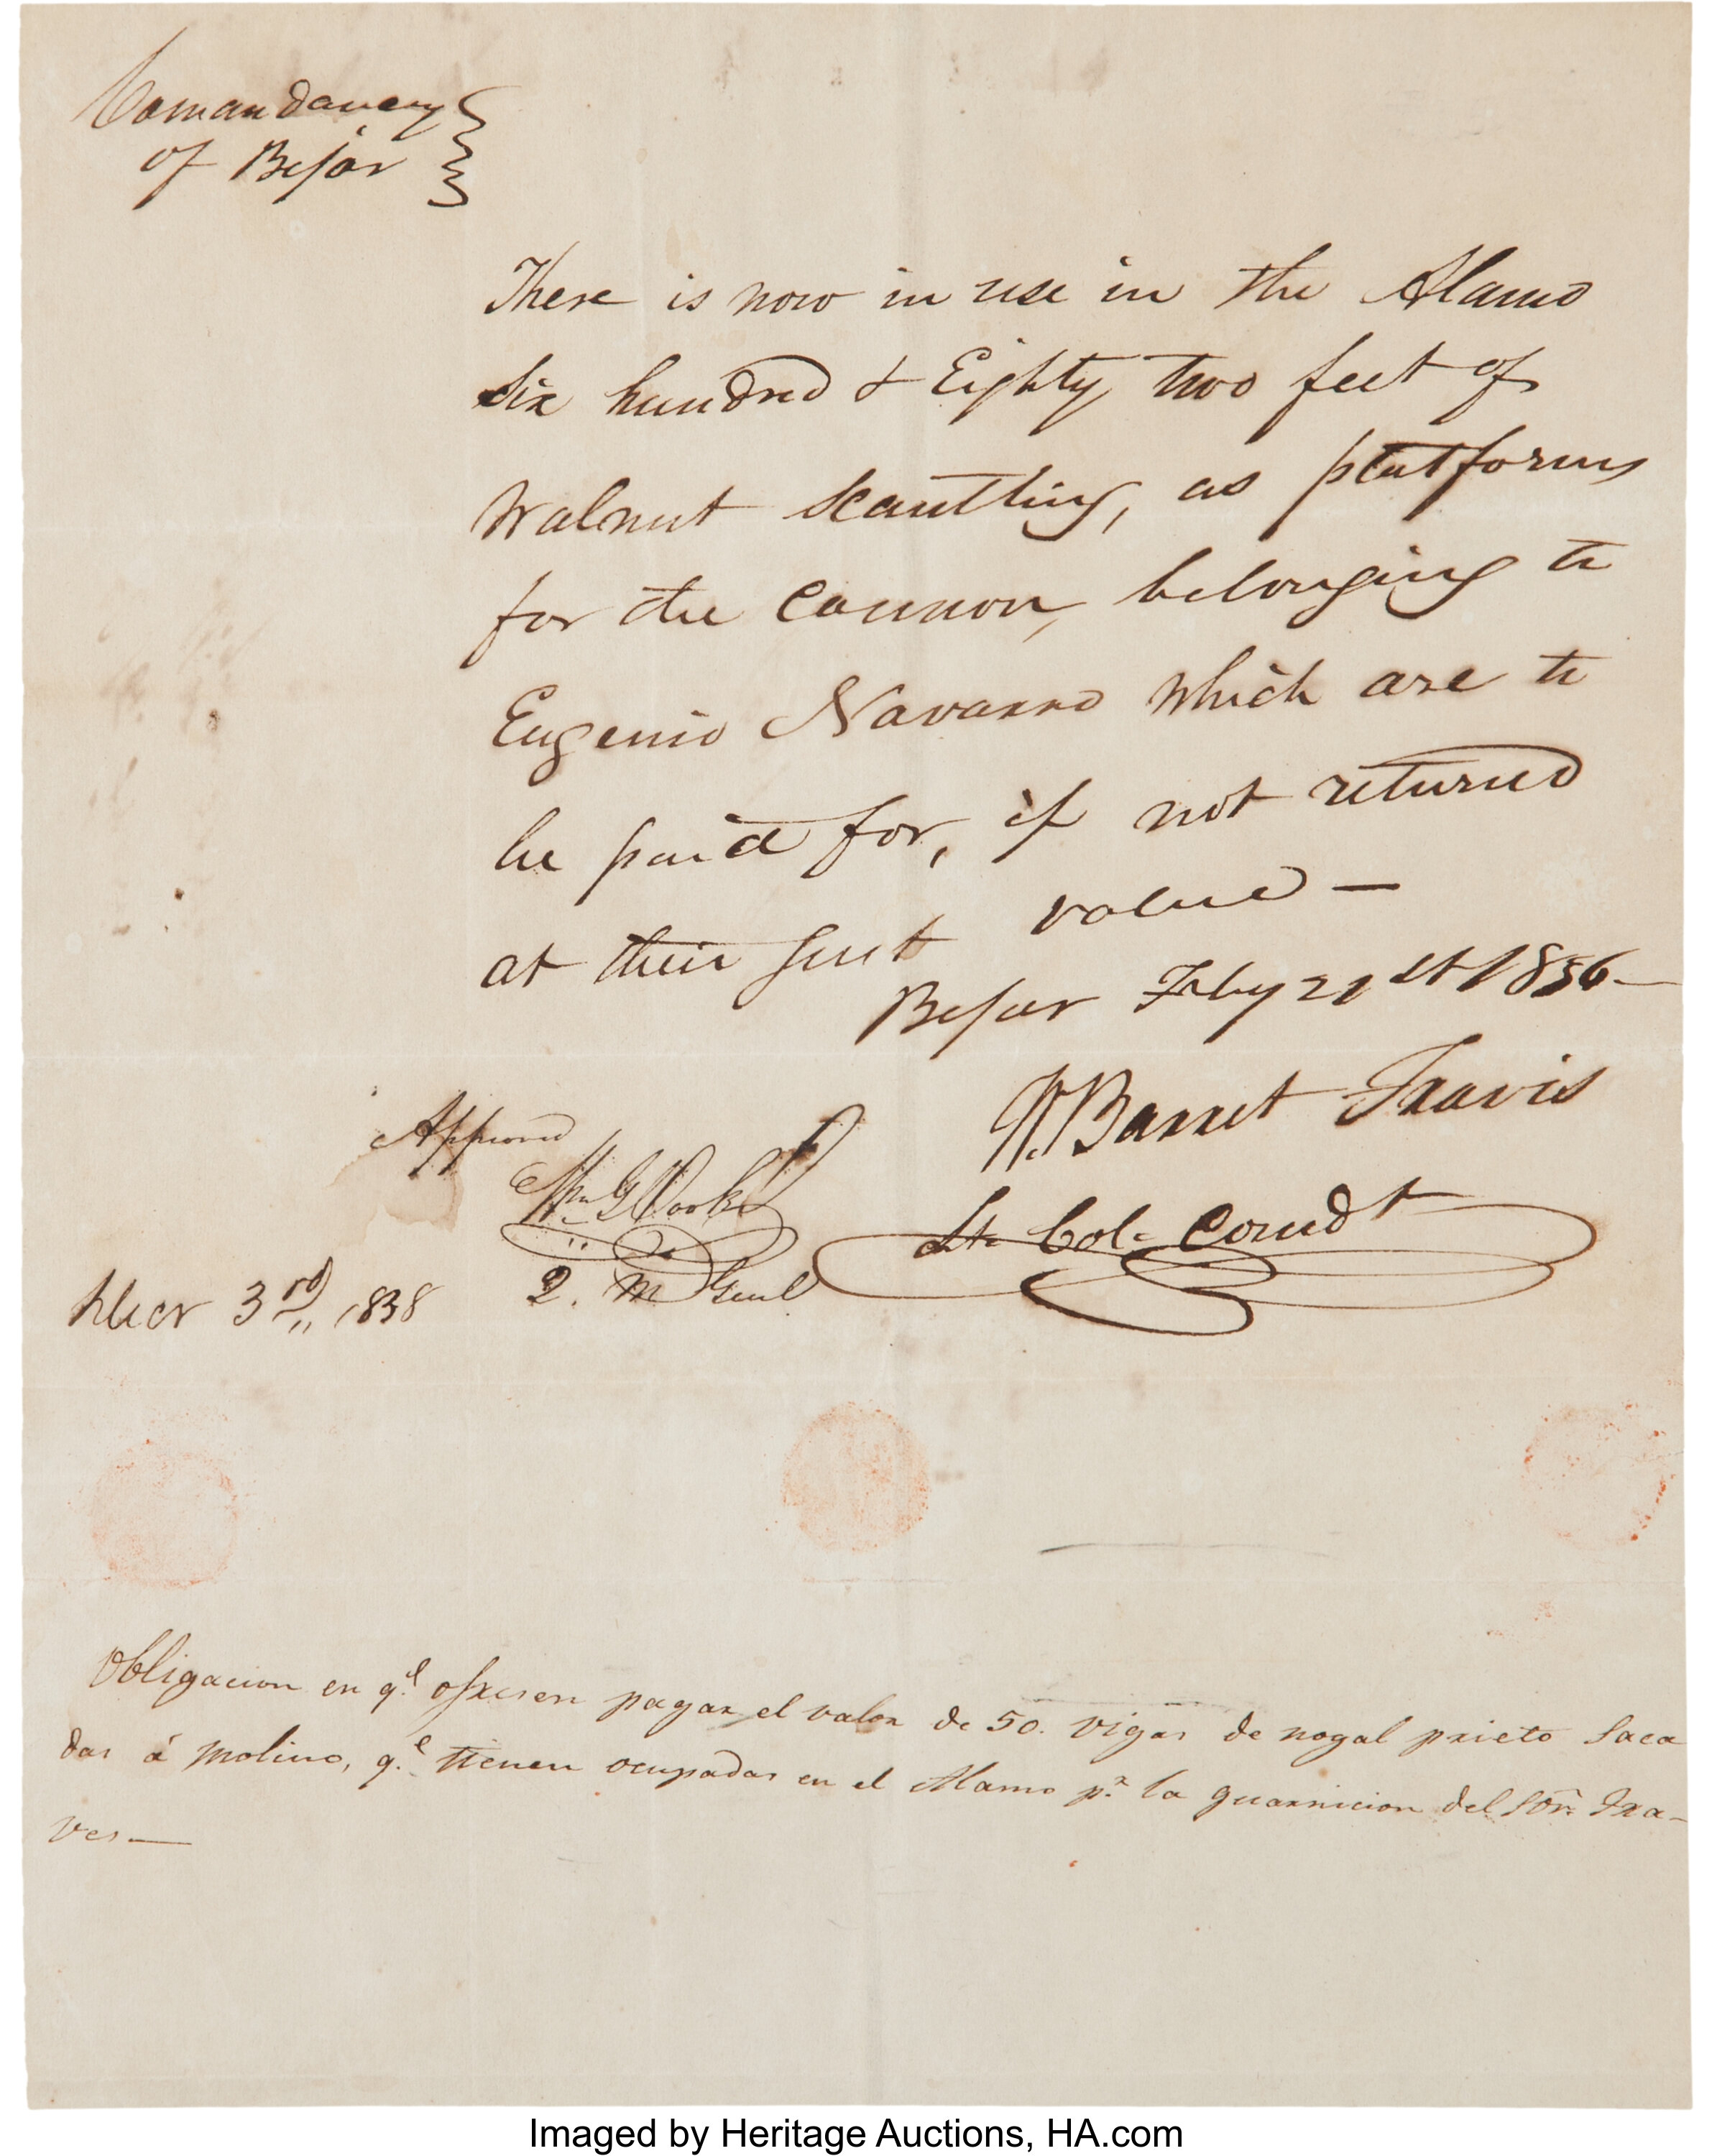 Comandancy
of Bejar
There is now in use in the Alamo
Six hundred & Eighty two feet of
Walnut Scantling, as platforms
for the Cannon, belonging to
Eugenio Navarro which are to
be paid for, if not returned
at their just value —
Bejar Feby 21st 1836—
W. Barret Travis
Lt. Col. Comdt
Approved
Wm G Cooke
Q. M Genl
Decr 3rd, 1838
Obligacion en qe. ofresen pagar el valor de 50. vigas de nogal prieto Saca
das á molino, qe. tienen ocupadas en el Alamo pa. la guarnicion del Sor. Tra-
ves—
Imaged by Heritage Auctions, HA.com